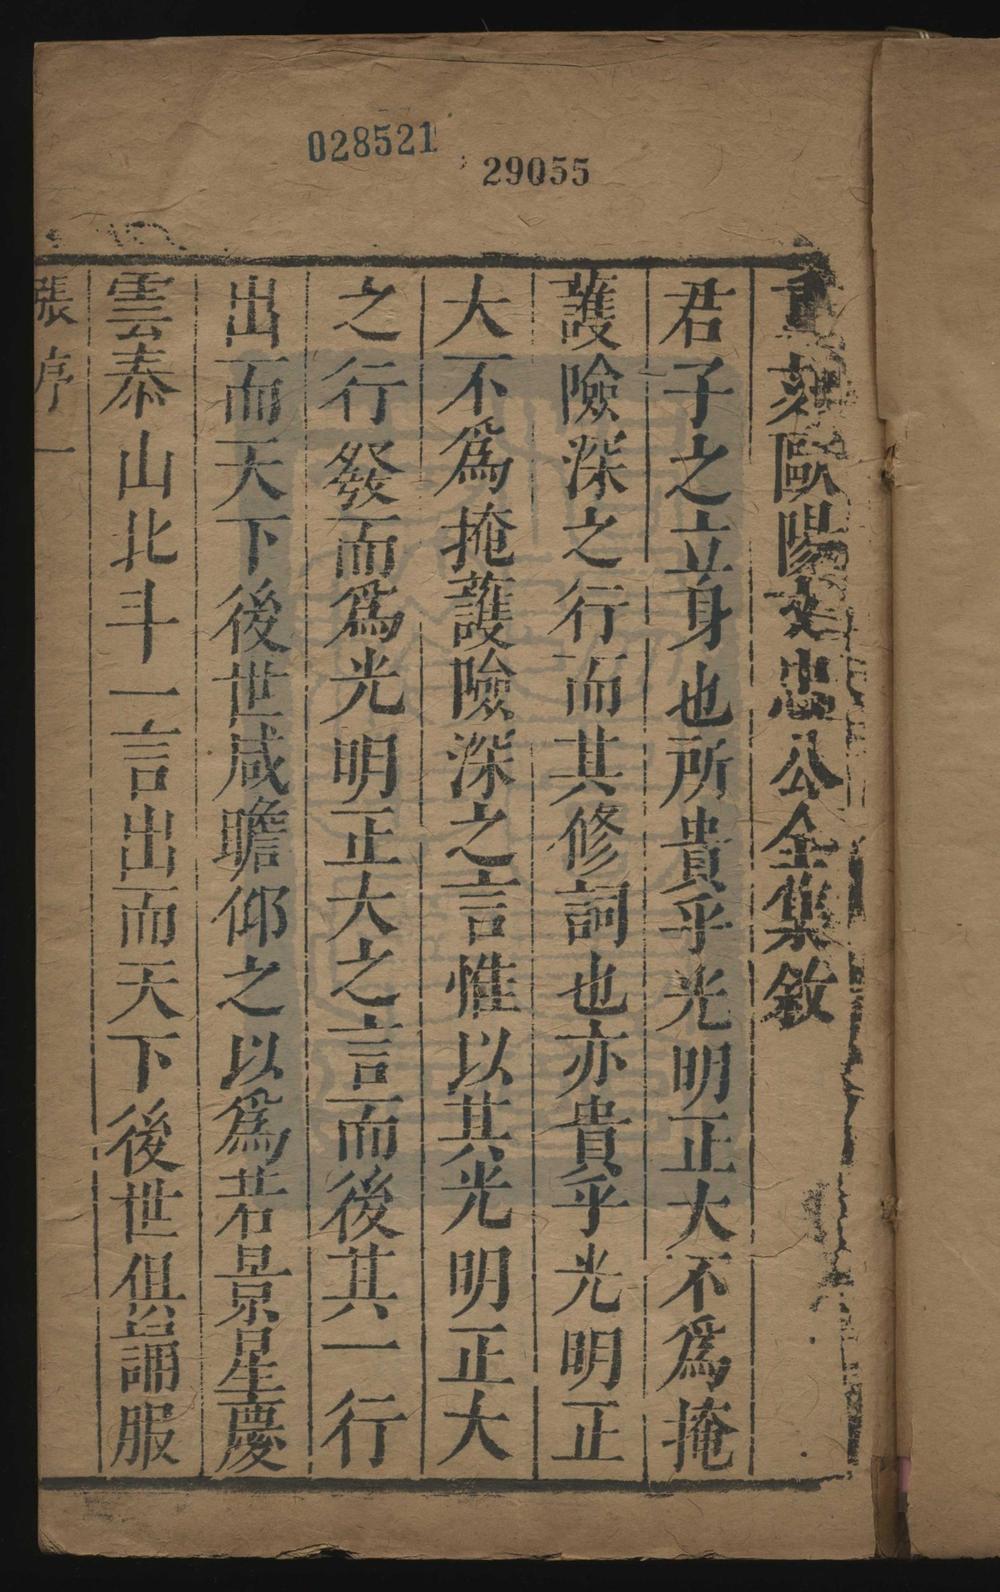 028521
29055
重刻歐陽文忠公全集敘
君子之立身也所貴乎光明正大不爲掩
護險深之行而其修詞也亦貴乎光明正
大不爲掩護險深之言惟以其光明正大
之行發而爲光明正大之言而後其一行
出而天下後世咸瞻仰之以爲若景星慶
雲泰山北斗一言出而天下後世俱誦服
張序 一